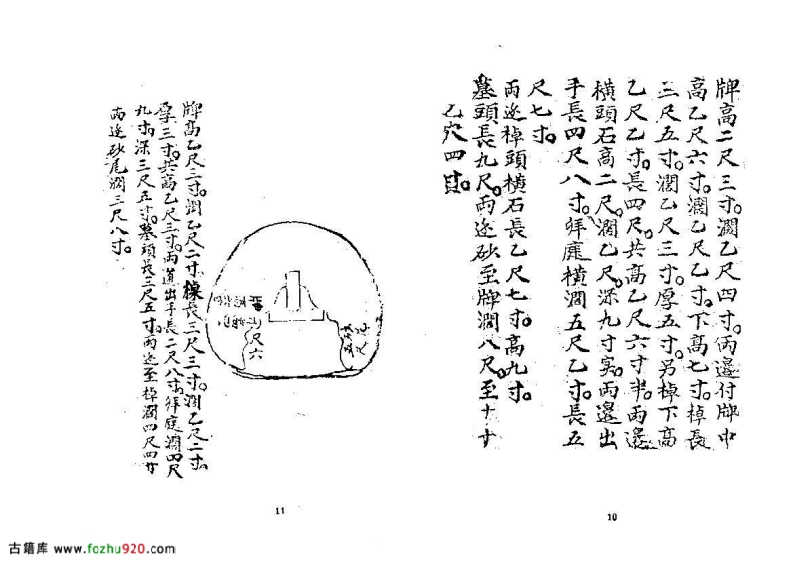 牌高二尺三寸。濶乙尺四寸。兩邊付牌中
高乙尺六寸。濶乙尺乙寸。下高七寸。棹長
三尺五寸。濶乙尺三寸。厚五寸。另棹下高
乙尺乙寸。長四尺。共高乙尺六寸半。兩邊
橫頭石高二尺。濶乙尺。深九寸实。兩邊出
手長四尺八寸。拜庭橫濶五尺乙寸。長五
尺七寸。
兩边棹頭橫石長乙尺七寸。高九寸。
墓頭長九尺。兩边砂至牌濶八尺。至十寸
乙穴四
10
牌高乙尺三寸。濶乙尺二寸。檯長三尺三寸。濶乙尺二寸。
厚三寸。共高乙尺三寸。兩道出手長二尺八寸。拜庭濶四尺
九寸。深三尺五寸。墓頭長三尺五寸。兩边至棹濶四尺四寸
兩边砂尾濶三尺八寸。
尺六
11
古籍库 www.fozhu920.com